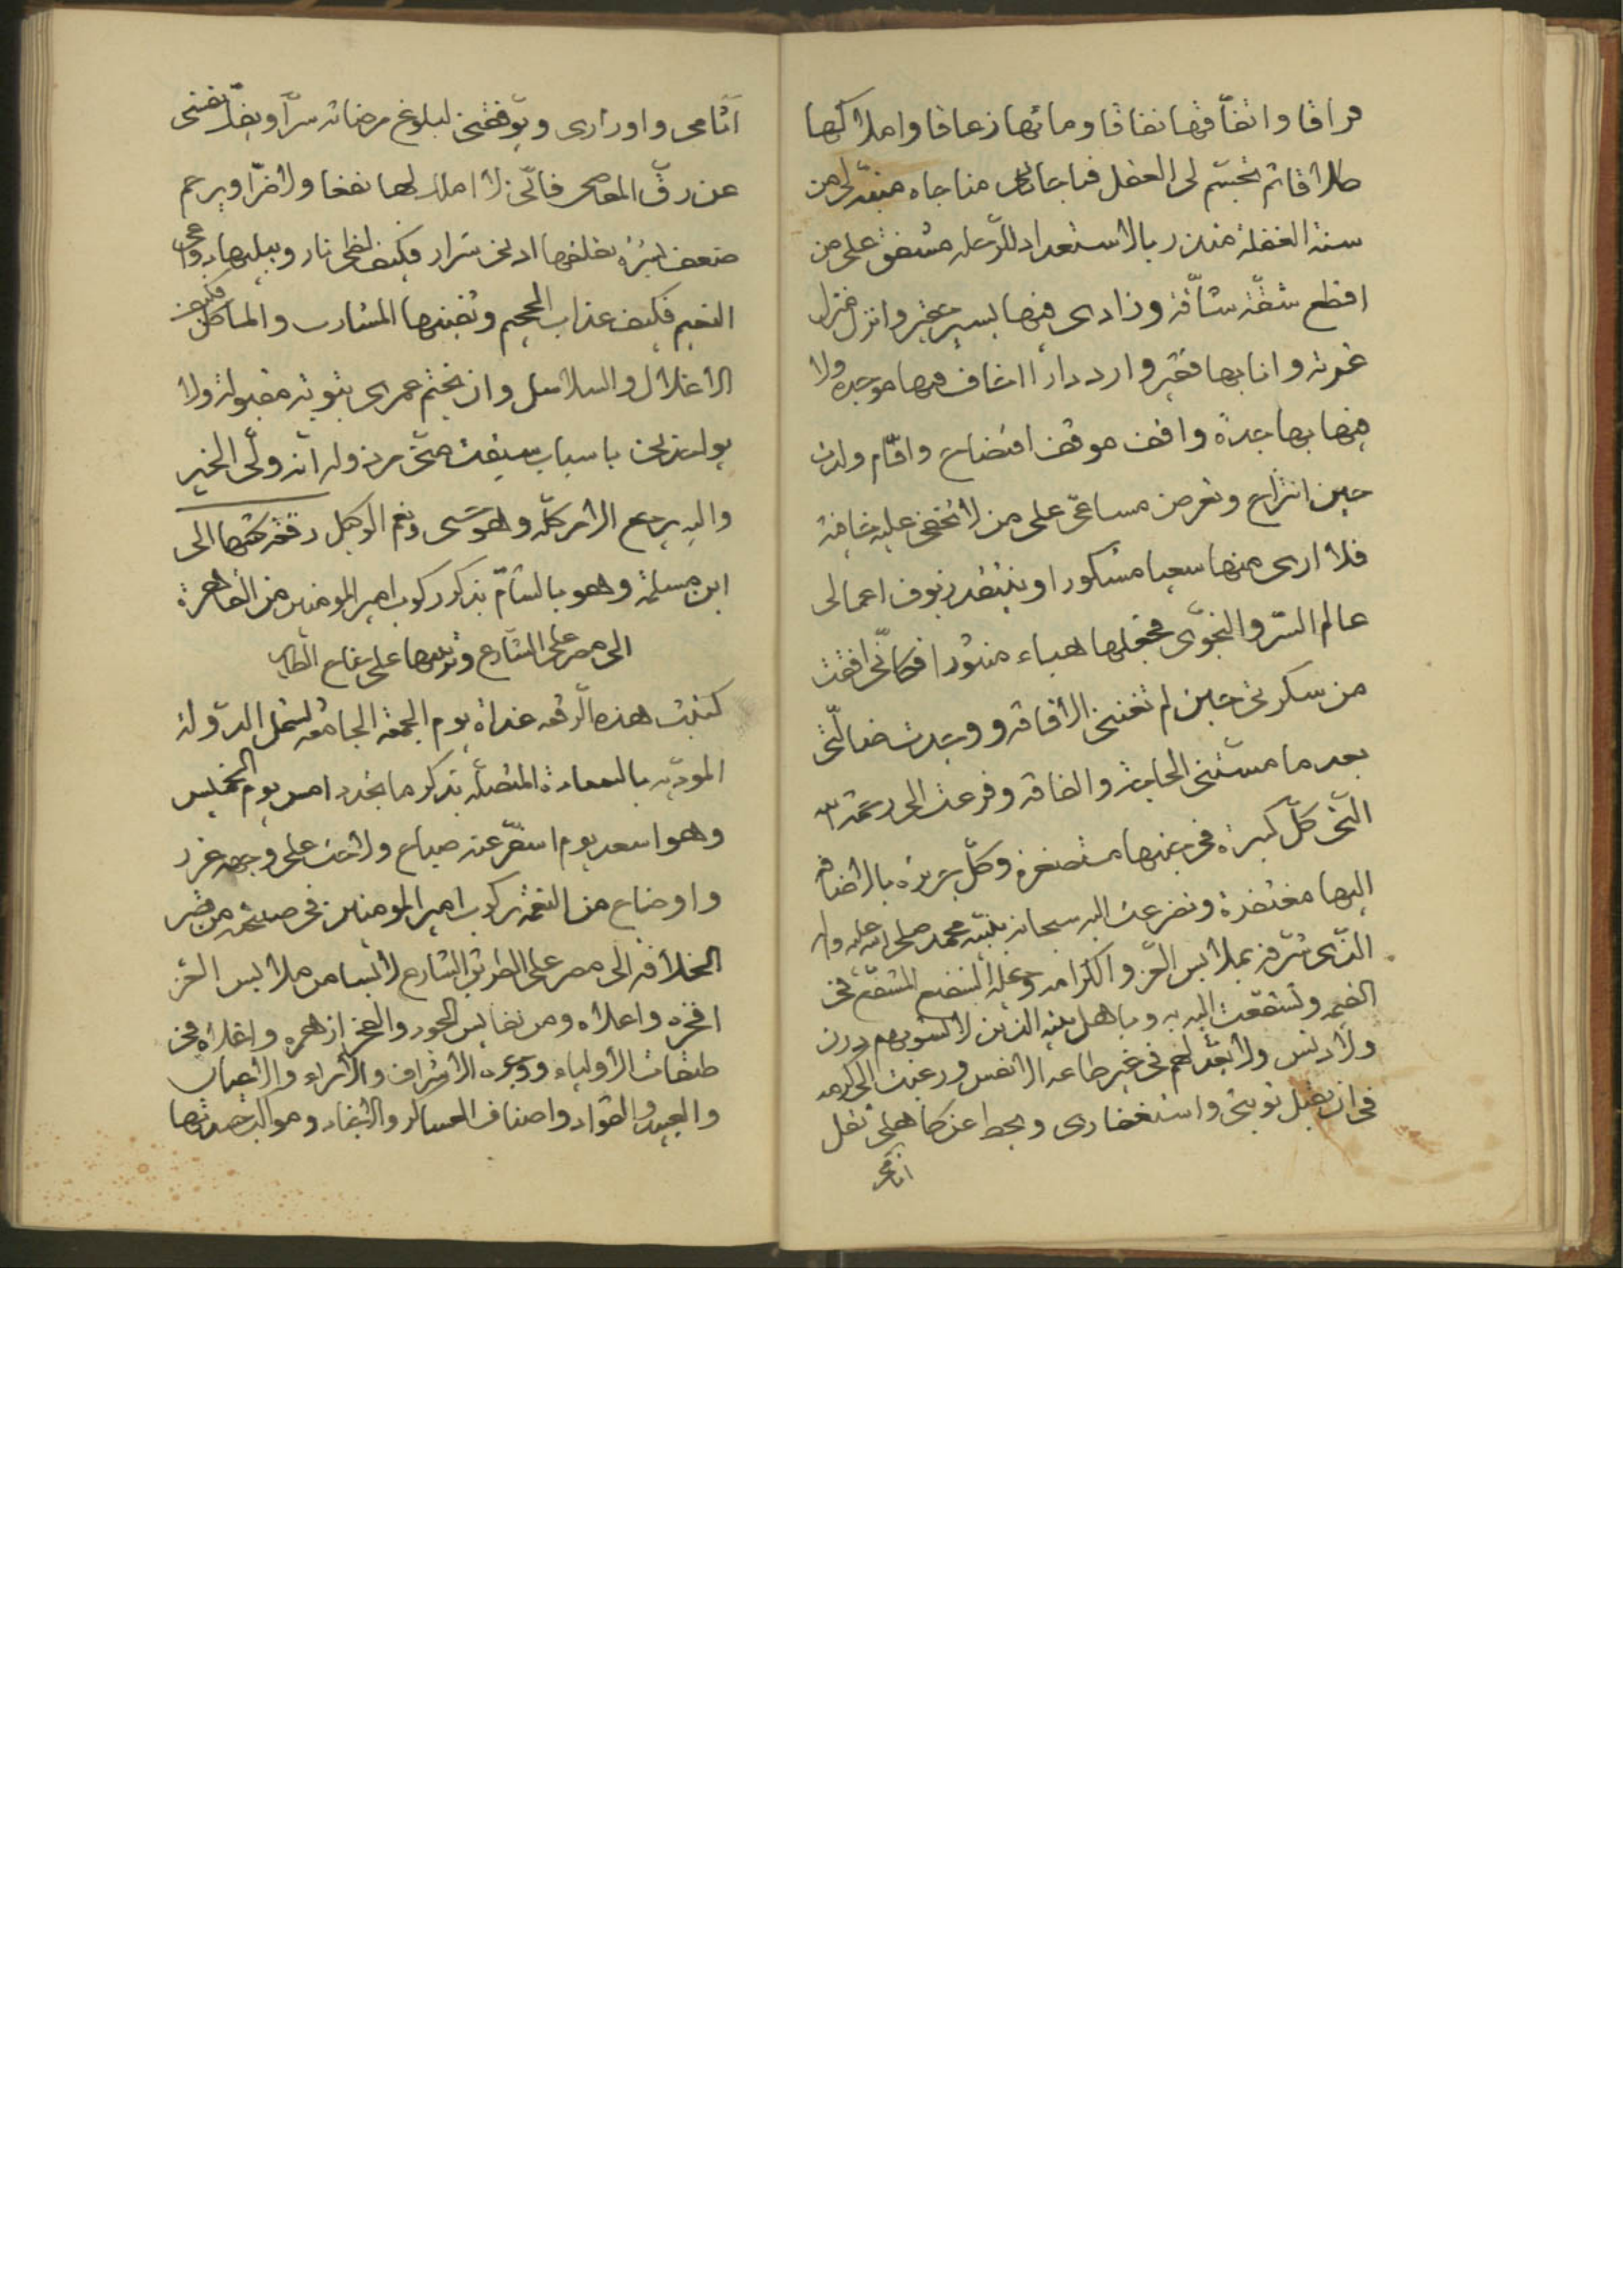 فراقا واتفاقها نفاقا ومائها زعاقا واملاكها
طلاقا ثم تجسّم لى العقل فناجانى مناجاه منبّه لى من
سنة الغفلة منذر بالاستعداد للرحله مشفق على من
اقطع شقّة شاقّة وزادى فيها يسير حقير وانزل منزل
غربة وانا بها فقير وارد دارا اخاف فيها موجدة ولا
فيها بها جدة واقف موقف افتضاح واقام ولات
حين انتزاح وتعرض مساعىّ على من لا تخفى عليه خافية
فلا ارى منها سعيا مشكورا وينتقد زيوف اعمالى
عالم السّر والنجوى فيجعلها هباء منثورا فكانّى افقت
من سكرتى حين لم تغننى الافاقه ووجدت ضالّتى
بعد ما مسّتنى الحاجة والفاقه وفزعت الى رحمة الله
الّتى كلّ كبيرة فى جنبها مستصغرة وكلّ جريرة بالاضافة
اليها مغتفرة وتضرعت اليه سبحانه بنبيّه محمد صلى الله عليه واله
الذى شرفه بملابس العّز والكرامه وجعله الشفيع المشفّع فى
القيمه وتشفعت اليه به وباهل بيته الذين لا يشوبهم درن
ولا دنس ولا يعد لهم فى غير طاعه الانفس ورغبت الى كرمه
فى ان يقبل توبتى واستغفارى ويحط عن كاهلى ثقل
اثامى
اثامى واوزارى ويوفقنى لبلوغ مرضاته سرّا ويفكّ نفسى
عن رقّ المعاصى فانّى لا املك لها نفعا ولا ضرّا ويرحم
ضعف بشرة يقلقها ادنى شرار فكيف لظى نار ويبليها دواعى
النعيم فكيف عذاب الجحيم وتضنيها المشارب والماكل فكيف
الاغلال والسلاسل وان يختم عمرى بتوبة مقبولة ولا
يواخذنى باسباب سبقت منّى مرذوله انّه ولّى الخير
واليه يرجع الامر كلّه وهو حسبى ونعم الوكيل رقعة كتبها الى
ابن مسلمة وهو بالشّام بذكر ركوب امير المومنين من القاهرة
الى مصر على الشارع وتزيينها على بقاع الطاس
كتبت هذه الرقعه غداة يوم الجمعه الجامعه لشمل الدولة
المودّيه بالسعادة المتصلّه بذكر ما تجدد امس يوم الخميس
وهو اسعد يوم اسفر عنه صباح ولاحت على وجهه غرر
واوضاح من النعمه بركوب امير المومنين فى صبيحته من قصر
الخلافه الى مصر على الطريق الشارع لابسا من ملابس العّز
افخره واعلاه ومن نفايس الجود والفخر ازهره واغلاه فى
طبقات الاولياء ووجوه الاشراف والامراء والاعيان
والعبيد والقواد واصناف العساكر والاجناد ومواكب تصدّعها